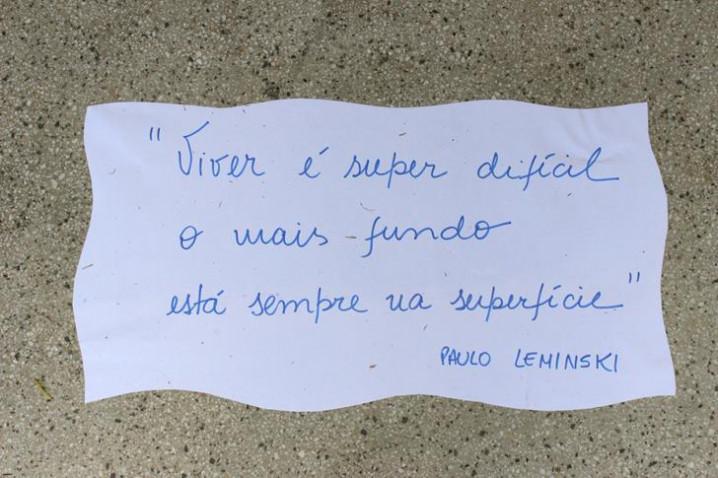 "Viver é super difícil
o mais fundo
está sempre na superfície"
PAULO LEMINSKI